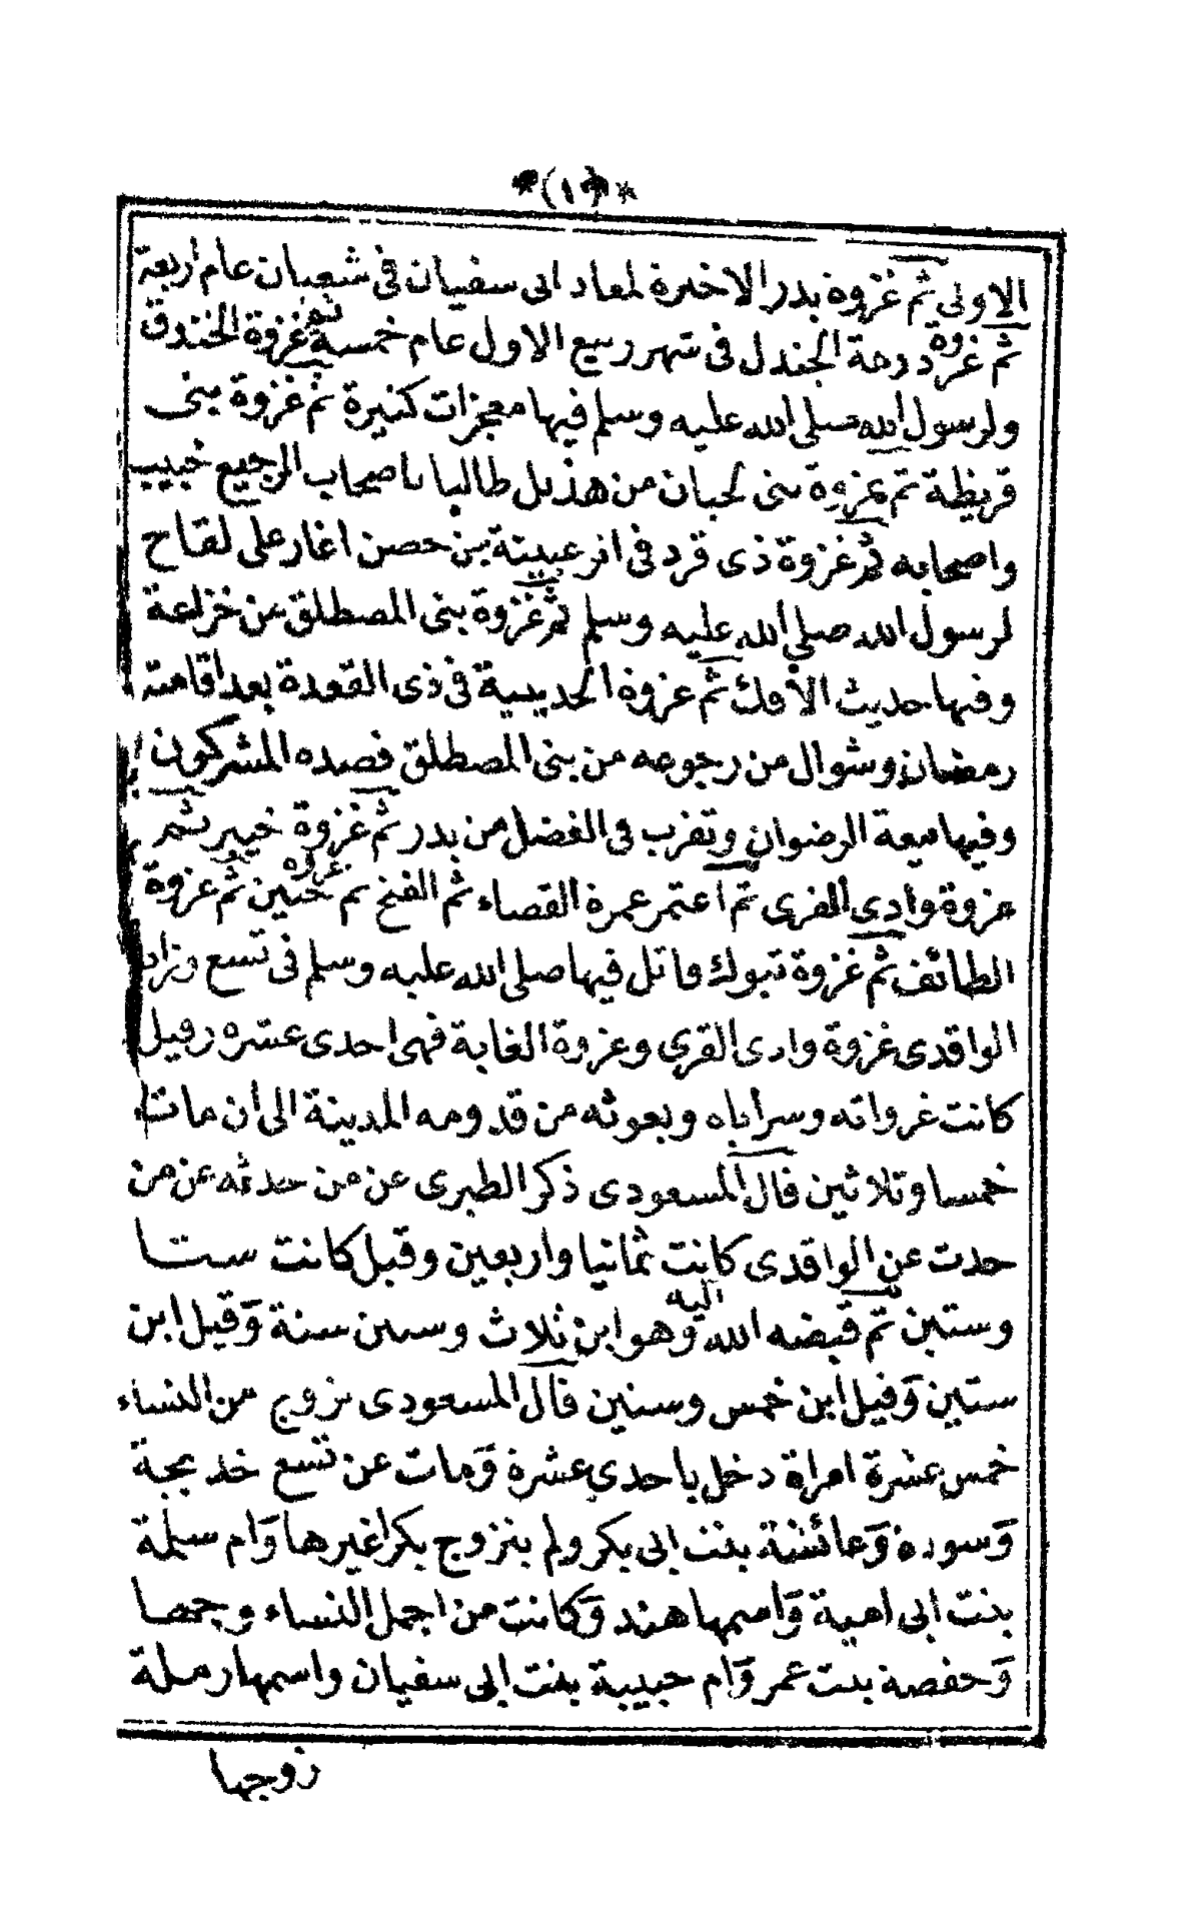 *(١٠)*
الاولى ثم غزوة بدر الاخيرة لمعاد ابى سفيان فى شعبان عام اربعة
ثم غزوة دومة الجندل فى شهر ربيع الاول عام خمسة ثم غزوة الخندق
ولرسول الله صلى الله عليه وسلم فيها معجزات كثيرة ثم غزوة بنى
قريظة ثم غزوة بنى لحيان من هذيل طالبا باصحاب الرجيع خبيب
واصحابه ثم غزوة ذى قرد فى اثر عيينة بن حصن اغار على لقاح
لرسول الله صلى الله عليه وسلم ثم غزوة بنى المصطلق من خزاعة
وفيها حديث الافك ثم غزوة الحديبية فى ذى القعدة بعد اقامته
رمضان وشوال من رجوعه من بنى المصطلق فصده المشركون
وفيها بيعة الرضوان وتقرب فى الفضل من بدر ثم غزوة خيبر ثم
غزوة وادى القرى ثم اعتمر عمرة القضاء ثم الفتح ثم غزوة حنين ثم غزوة
الطائف ثم غزوة تبوك قاتل فيها صلى الله عليه وسلم فى تسع وزاد
الواقدى غزوة وادى القرى وغزوة الغابة فهى احدى عشره وقيل
كانت غزواته وسراياه وبعوثه من قدومه المدينة الى ان مات
خمسا وثلاثين قال المسعودى ذكر الطبرى عن من حدثه عن من
حدث عن الواقدى كانت ثمانيا واربعين وقيل كانت ستا
وستين ثم قبضه الله اليه وهو ابن ثلاث وستين سنة وقيل ابن
ستين وقيل ابن خمس وستين قال المسعودى تزوج من النساء
خمس عشرة امراة دخل باحدى عشرة ومات عن تسع خديجة
وسودة وعائشة بنت ابى بكر ولم يتزوج بكرا غيرها وام سلمة
بنت ابى امية واسمها هند وكانت من اجمل النساء
وحفصة بنت عمر وام حبيبة بنت ابى سفيان واسمها رملة
زوجها